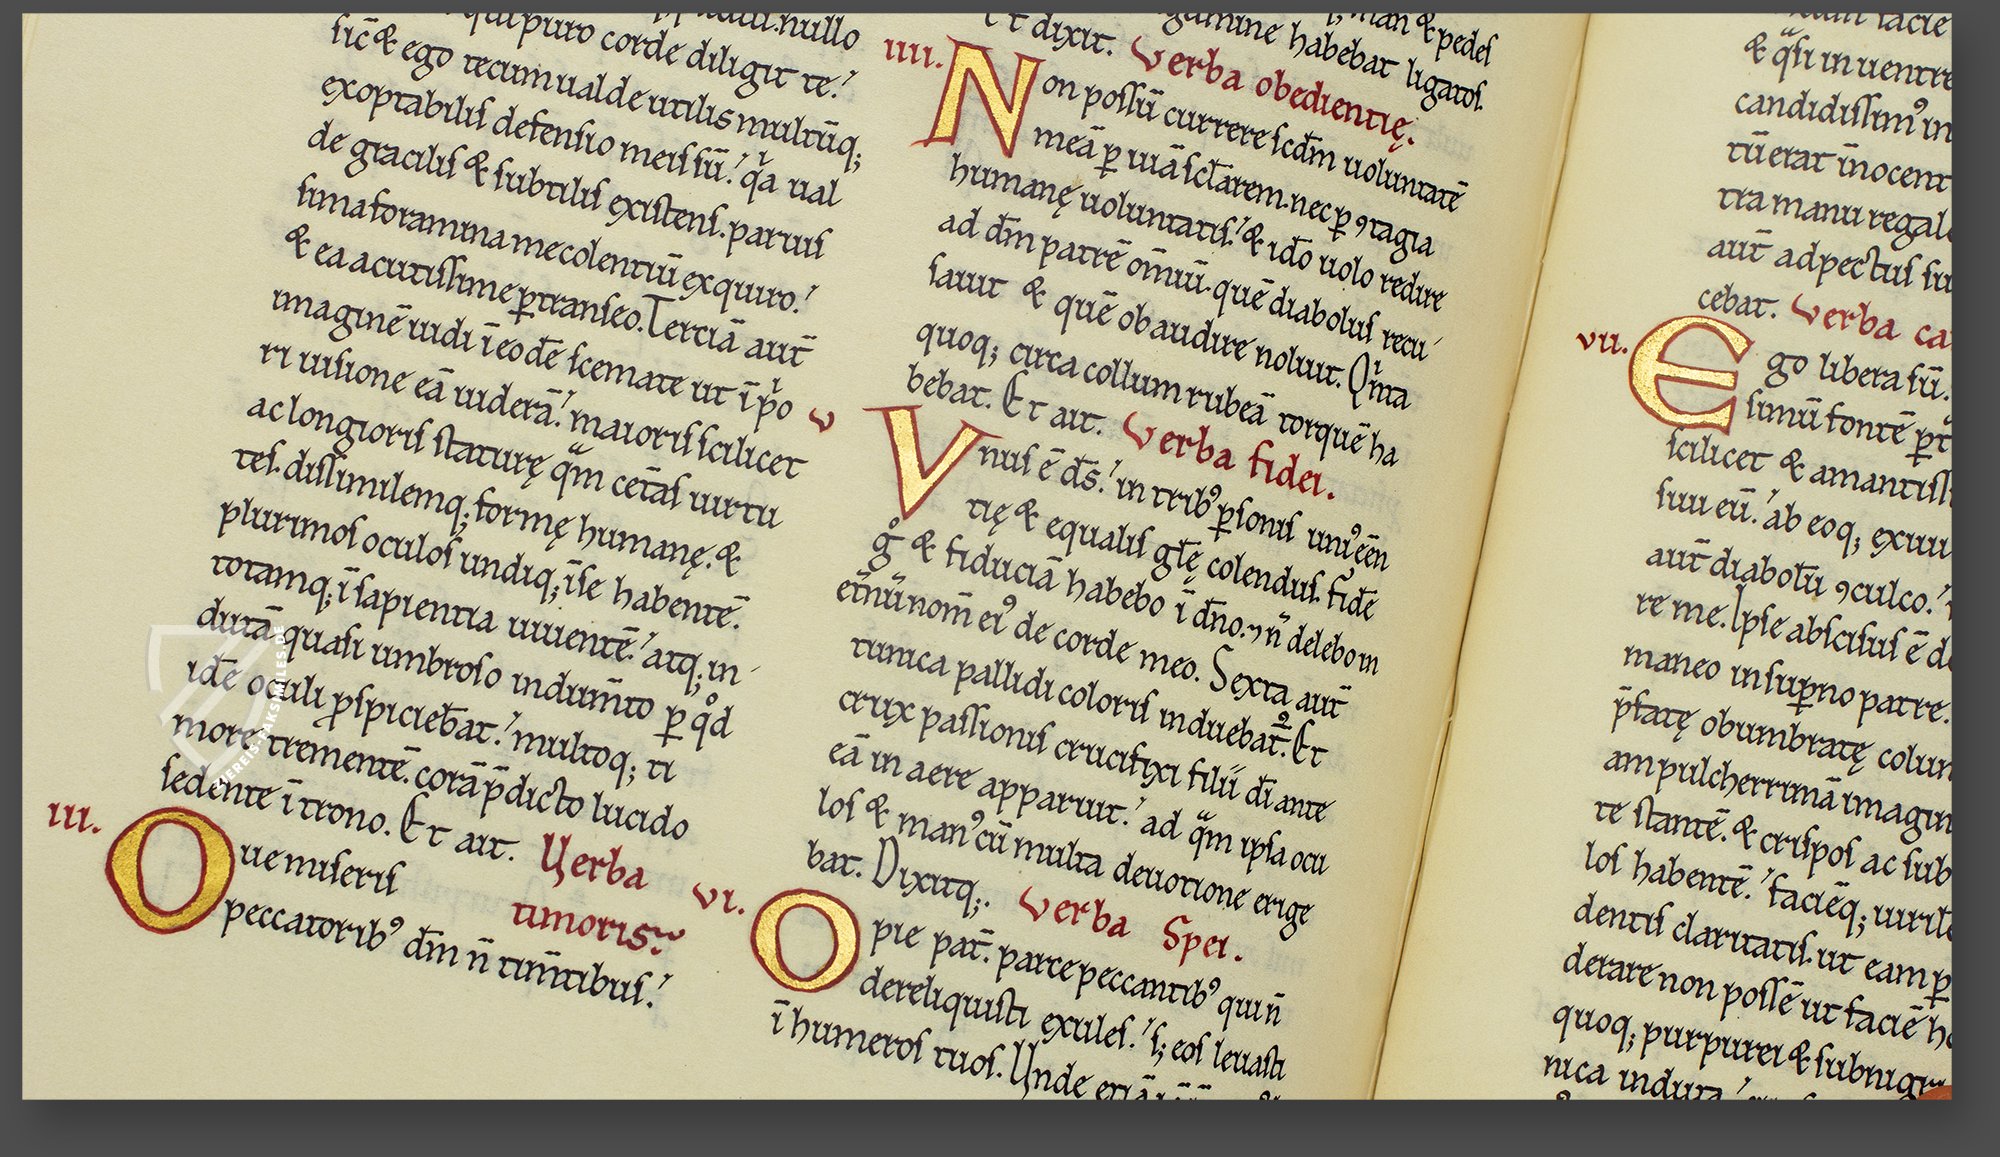 qui puro corde diligit te.
sic & ego tecum ualde utilis multūq;
exoptabilis defensio meis sū. qͣa ual
de gracilis & subtilis existens. paruis
sima foramina me colentiū exquiro.
& ea acutissime ꝑtranseo. Terciā aut̄
imaginē uidi ī eodē scemate ut ī pͥo
ri uisione eā uiderā. maioris scilicet
ac longioris staturę qͣm cet̄as uirtu
tes. dissimilemq; formę humanę. &
plurimos oculos undiq; ī se habentē.
totamq; ī sapientia uiuentē. atq; in
dutā quasi umbroso indum̄to ꝑ qͦd
idē oculi ꝑspiciebat. multoq; ti
more trementē. corā p̄dicto lucido
sedente ī trono. Et ait. Verba
timoris.
III. O ue miseris
peccatoribꝰ dm̄ n̄ tim̄tibus.
& pedes
gamine habebat ligatos.
Et dixit. Verba obedientię.
IIII. Non possū currere scdm̄ uoluntatē
meā ꝑ uiā sclarem. nec ꝑ ꝯtagia
humanę uoluntatis. & idō uolo redire
ad dm̄ patrē om̄iū. quē diabolus recu
sauit & quē obaudire noluit. Qͥnta
quoq; circa collum rubeā torquē ha
bebat. Et ait. Verba fidei.
V Vnus ē ds̄. in tribꝰ ꝑsonis uniꝰ ēēn
tię & equalis gl̄ę colendus. Fidē
gͦ & fiduciā habebo ī dn̄o. ⁊ n̄ delebo in
et̄nū nom̄ eiꝰ de corde meo. Sexta aut̄
tunica pallidi coloris induebat᷑. Et
crux passionis crucifixi filii dī ante
eā in aere apparuit. ad qͣm ipsa ocu
los & manꝰ cū multa deuotione erige
bat. Dixitq;. Verba Spei.
VI. O pie pat̄. parce peccantibꝰ qui n̄
dereliquisti exules. s; eos leuasti
ī humeros tuos. Unde etiā
facie
& qͣsi in uentre
candidissimꝰ in
tū erat īnocent
tra manu regal
aut̄ adpectus su
cebat. Verba ca
VII. Ego libera sū.
simū fontē ꝑt
scilicet & amantiss
sui eū. ab eoq; exiui
aut̄ diabolū ꝯculco.
re me. Ipse abscisus ē d
maneo in suꝑno patre.
p̄fatę obumbratę colum
am pulcherrimā imagin
te stantē. & crispos ac sub
los habentē. faciēq; uiril
dentis claritatis. ut eam ꝑ
derare non possē ut faciē h
quoq; purpurei & subnigr
nica induta.